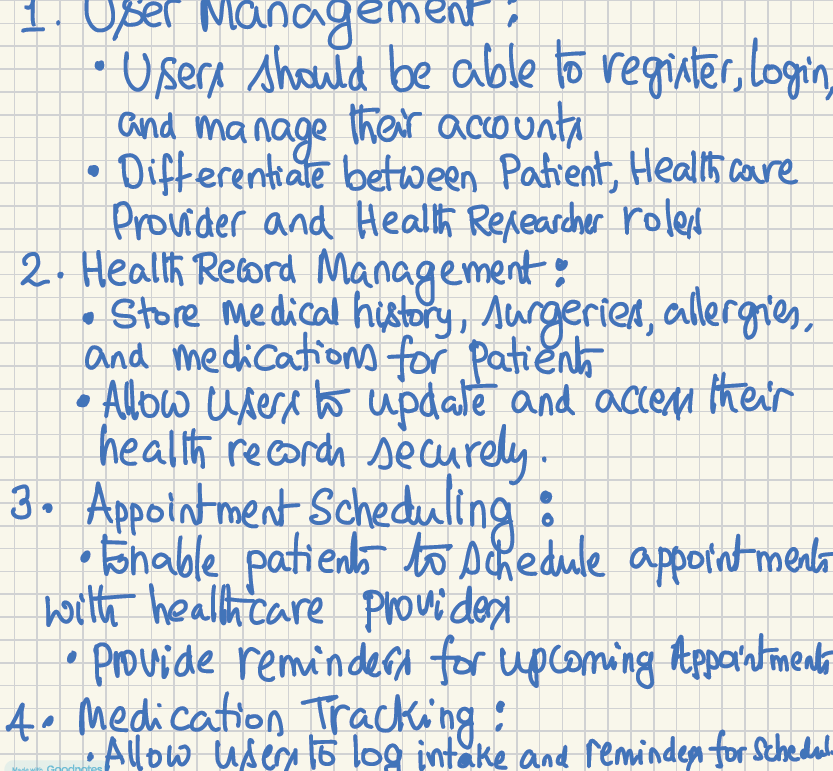 1. User Management :
• Users should be able to register, login,
and manage their accounts
• Differentiate between Patient, Healthcare
Provider and Health Researcher roles
2. Health Record Management :
• Store medical history, surgeries, allergies,
and medications for patients
• Allow users to update and access their
health records securely.
3. Appointment Scheduling :
• Enable patients to schedule appointments
with healthcare providers
• Provide reminders for upcoming Appointments
4. Medication Tracking :
• Allow users to log intake and reminders for
Made with Goodnotes